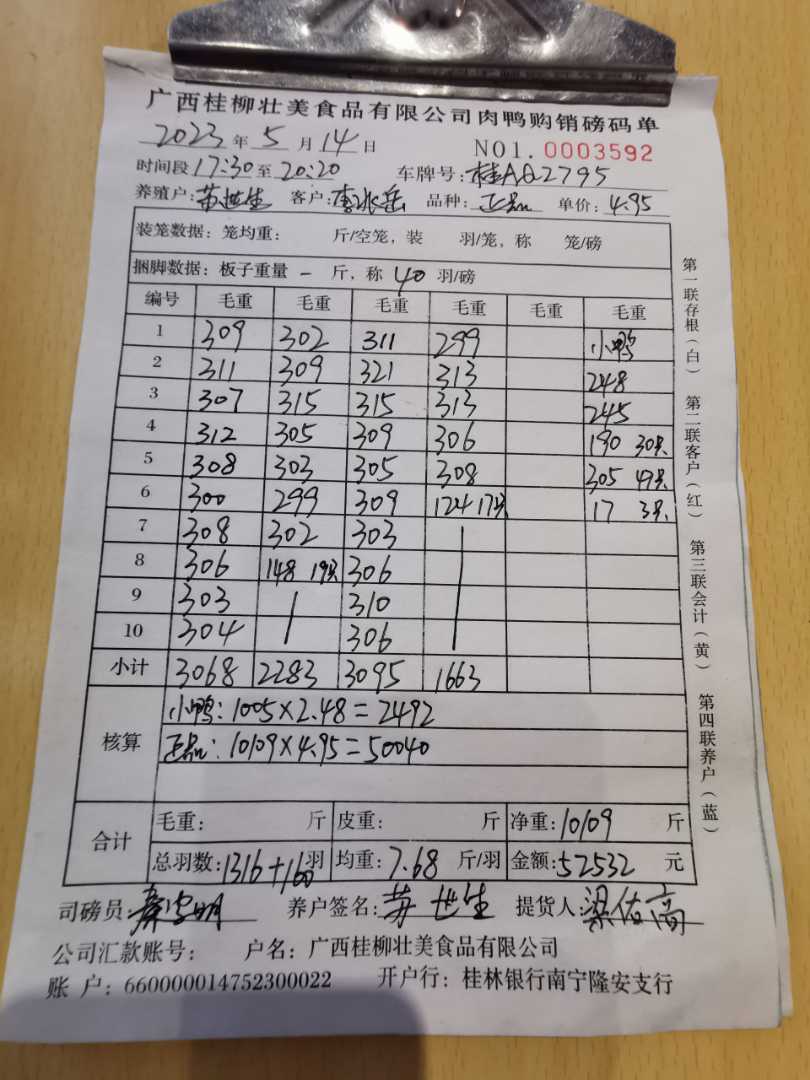 广西桂柳壮美食品有限公司肉鸭购销磅码单
2023 年 5 月 14 日 NO1. 0003592
时间段 17:30 至 20:20 车牌号: 桂AQ2795
养殖户: 苏世生 客户: 李冰岳 品种: 正品 单价: 4.95
装笼数据: 笼均重: 斤/空笼, 装 羽/笼, 称 笼/磅
捆脚数据: 板子重量 一 斤, 称 40 羽/磅
编号 毛重 毛重 毛重 毛重 毛重 毛重
1 309 302 311 299 小鸭
2 311 309 321 313 248
3 307 315 315 313 245
4 312 305 309 306 190 30只
5 308 303 305 308 305 49只
6 300 299 309 124 17只 17 3只
7 308 302 303
8 306 148 19只 306
9 303 310
10 304 306
小计 3068 2283 3095 1663
核算
小鸭: 1005×2.48=2492
正品: 10109×4.95=50040
合计
毛重: 斤 皮重: 斤 净重: 10109 斤
总羽数: 1316+160 羽 均重: 7.68 斤/羽 金额: 52532 元
司磅员: 养户签名: 苏世生 提货人: 梁佑高
公司汇款账号: 户名: 广西桂柳壮美食品有限公司
账 户: 660000014752300022 开户行: 桂林银行南宁隆安支行
第一联存根(白)
第二联客户(红)
第三联会计(黄)
第四联养户(蓝)